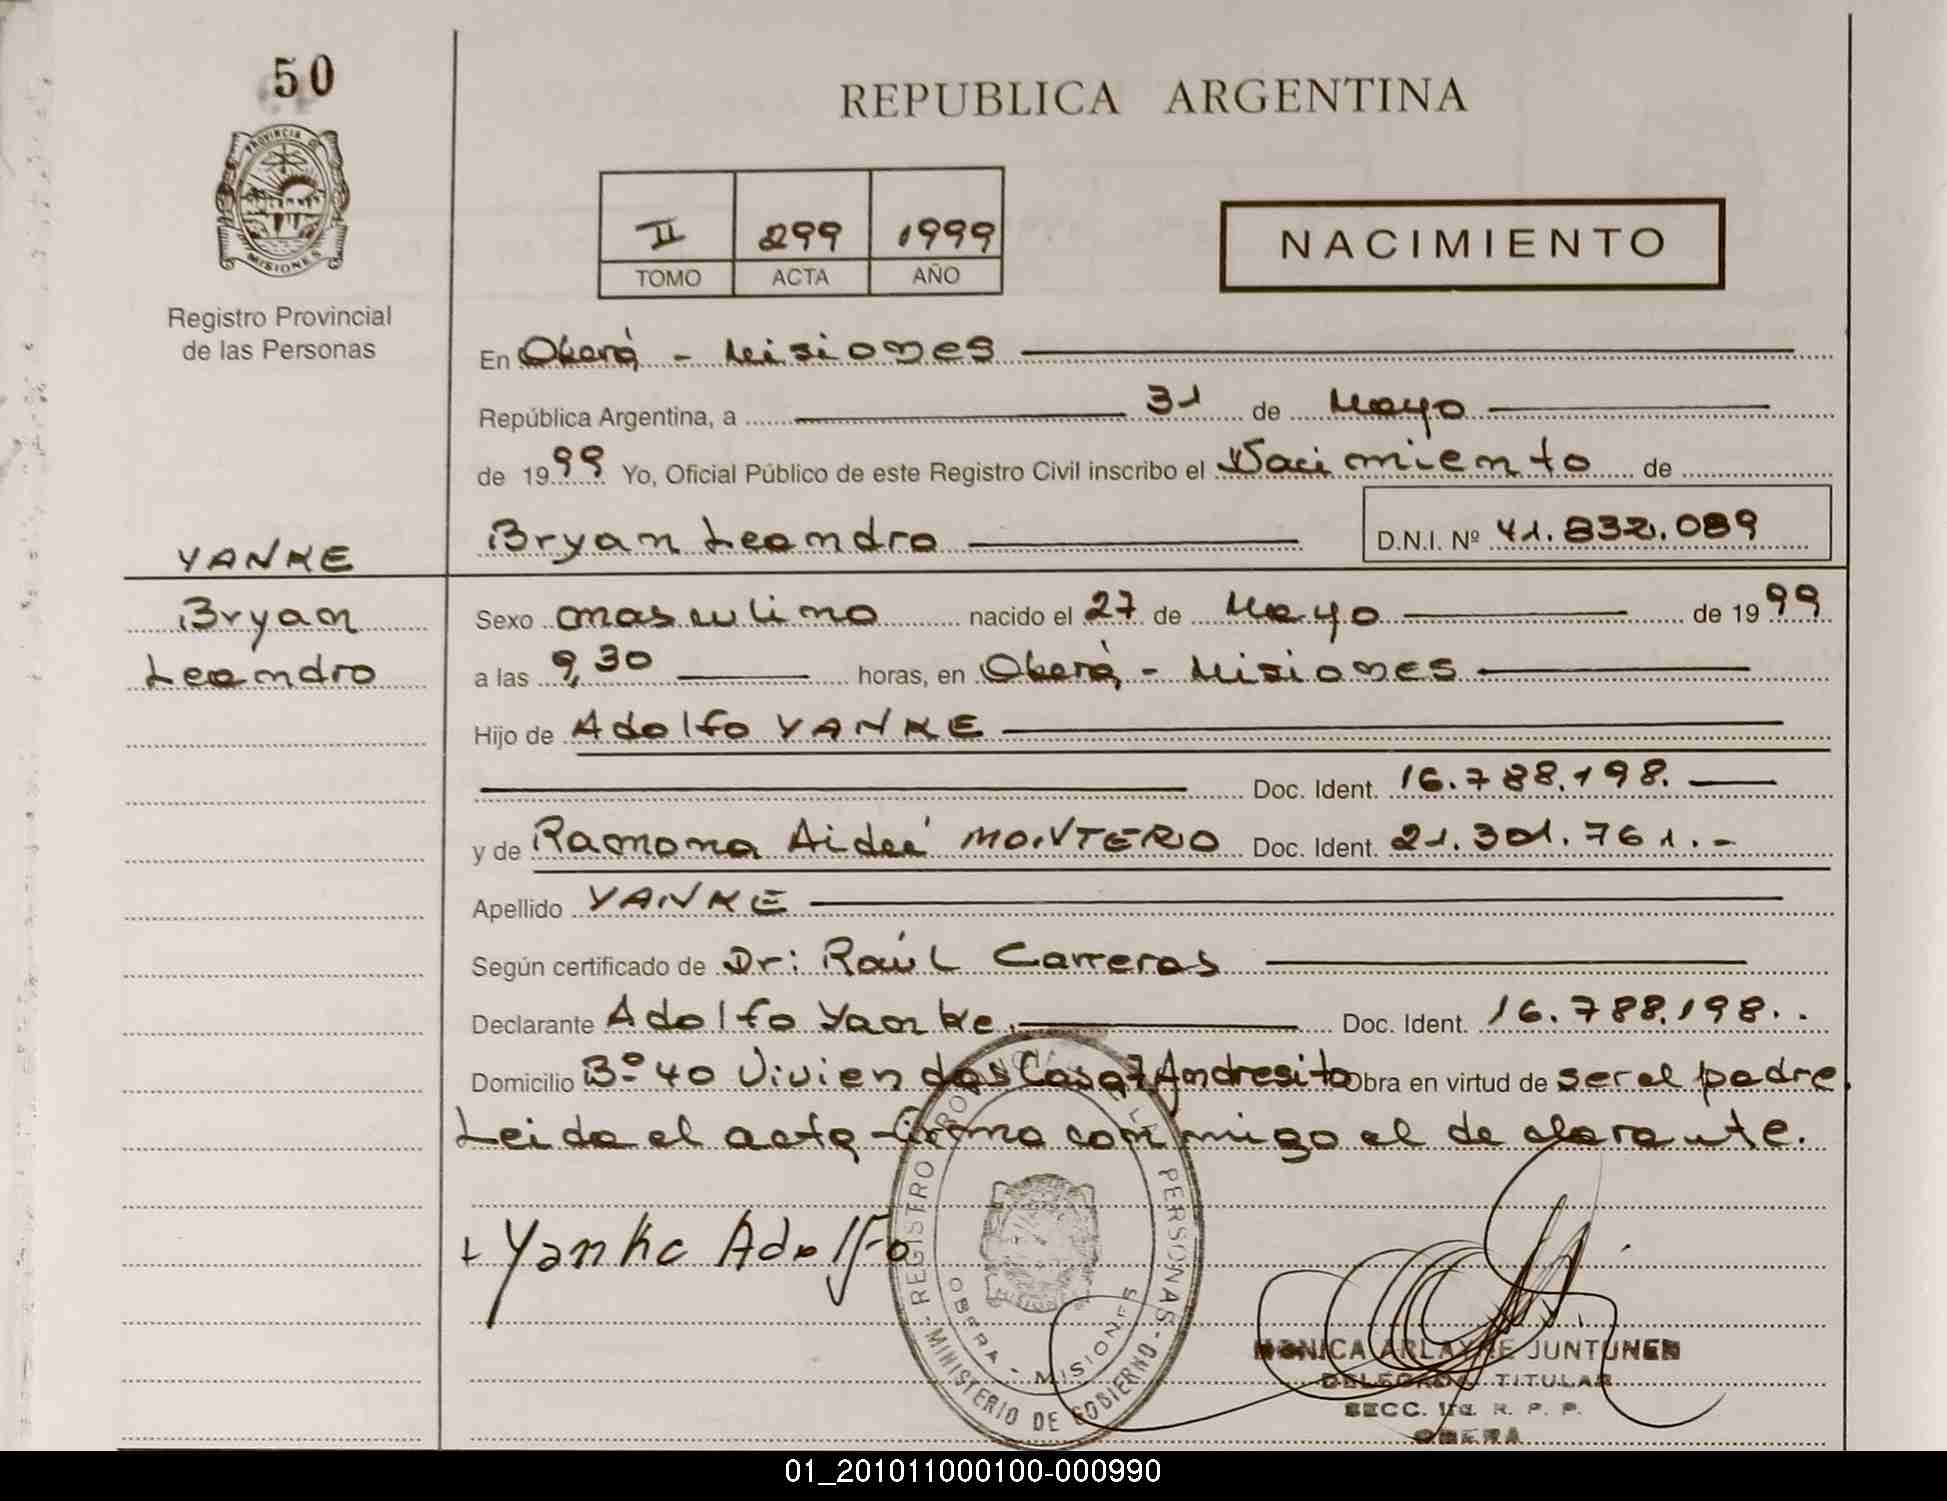 50
REPUBLICA ARGENTINA
PROVINCIA DE
MISIONES
II 299 1999
TOMO ACTA AÑO
NACIMIENTO
Registro Provincial
de las Personas
En Oberá - Misiones
República Argentina, a 31 de Mayo
de 1999 Yo, Oficial Público de este Registro Civil inscribo el Nacimiento de
Bryan Leandro D.N.I. Nº 41.832.089
YANKE
Bryan
Leandro
Sexo masculino nacido el 27 de Mayo de 1999
a las 9,30 horas, en Oberá - Misiones
Hijo de Adolfo YANKE
Doc. Ident. 16.788.198.
y de Ramona Aideé MONTERO Doc. Ident. 21.301.761.-
Apellido YANKE
Según certificado de Dr: Raúl Carreras
Declarante Adolfo Yanke. Doc. Ident. 16.788.198..
Domicilio Bº 40 Viviendas Casa 7 Andresito Obra en virtud de ser el padre.
Leida el acta firma conmigo el declarante.
+ Yanke Adolfo
REGISTRO PROVINCIAL DE LAS PERSONAS - MINISTERIO DE GOBIERNO -
OBERA - MISIONES
MONICA ARLAYNE JUNTUNEN
DELEGADA TITULAR
SECC. 1ra. R. P. P.
OBERA
01_201011000100-000990